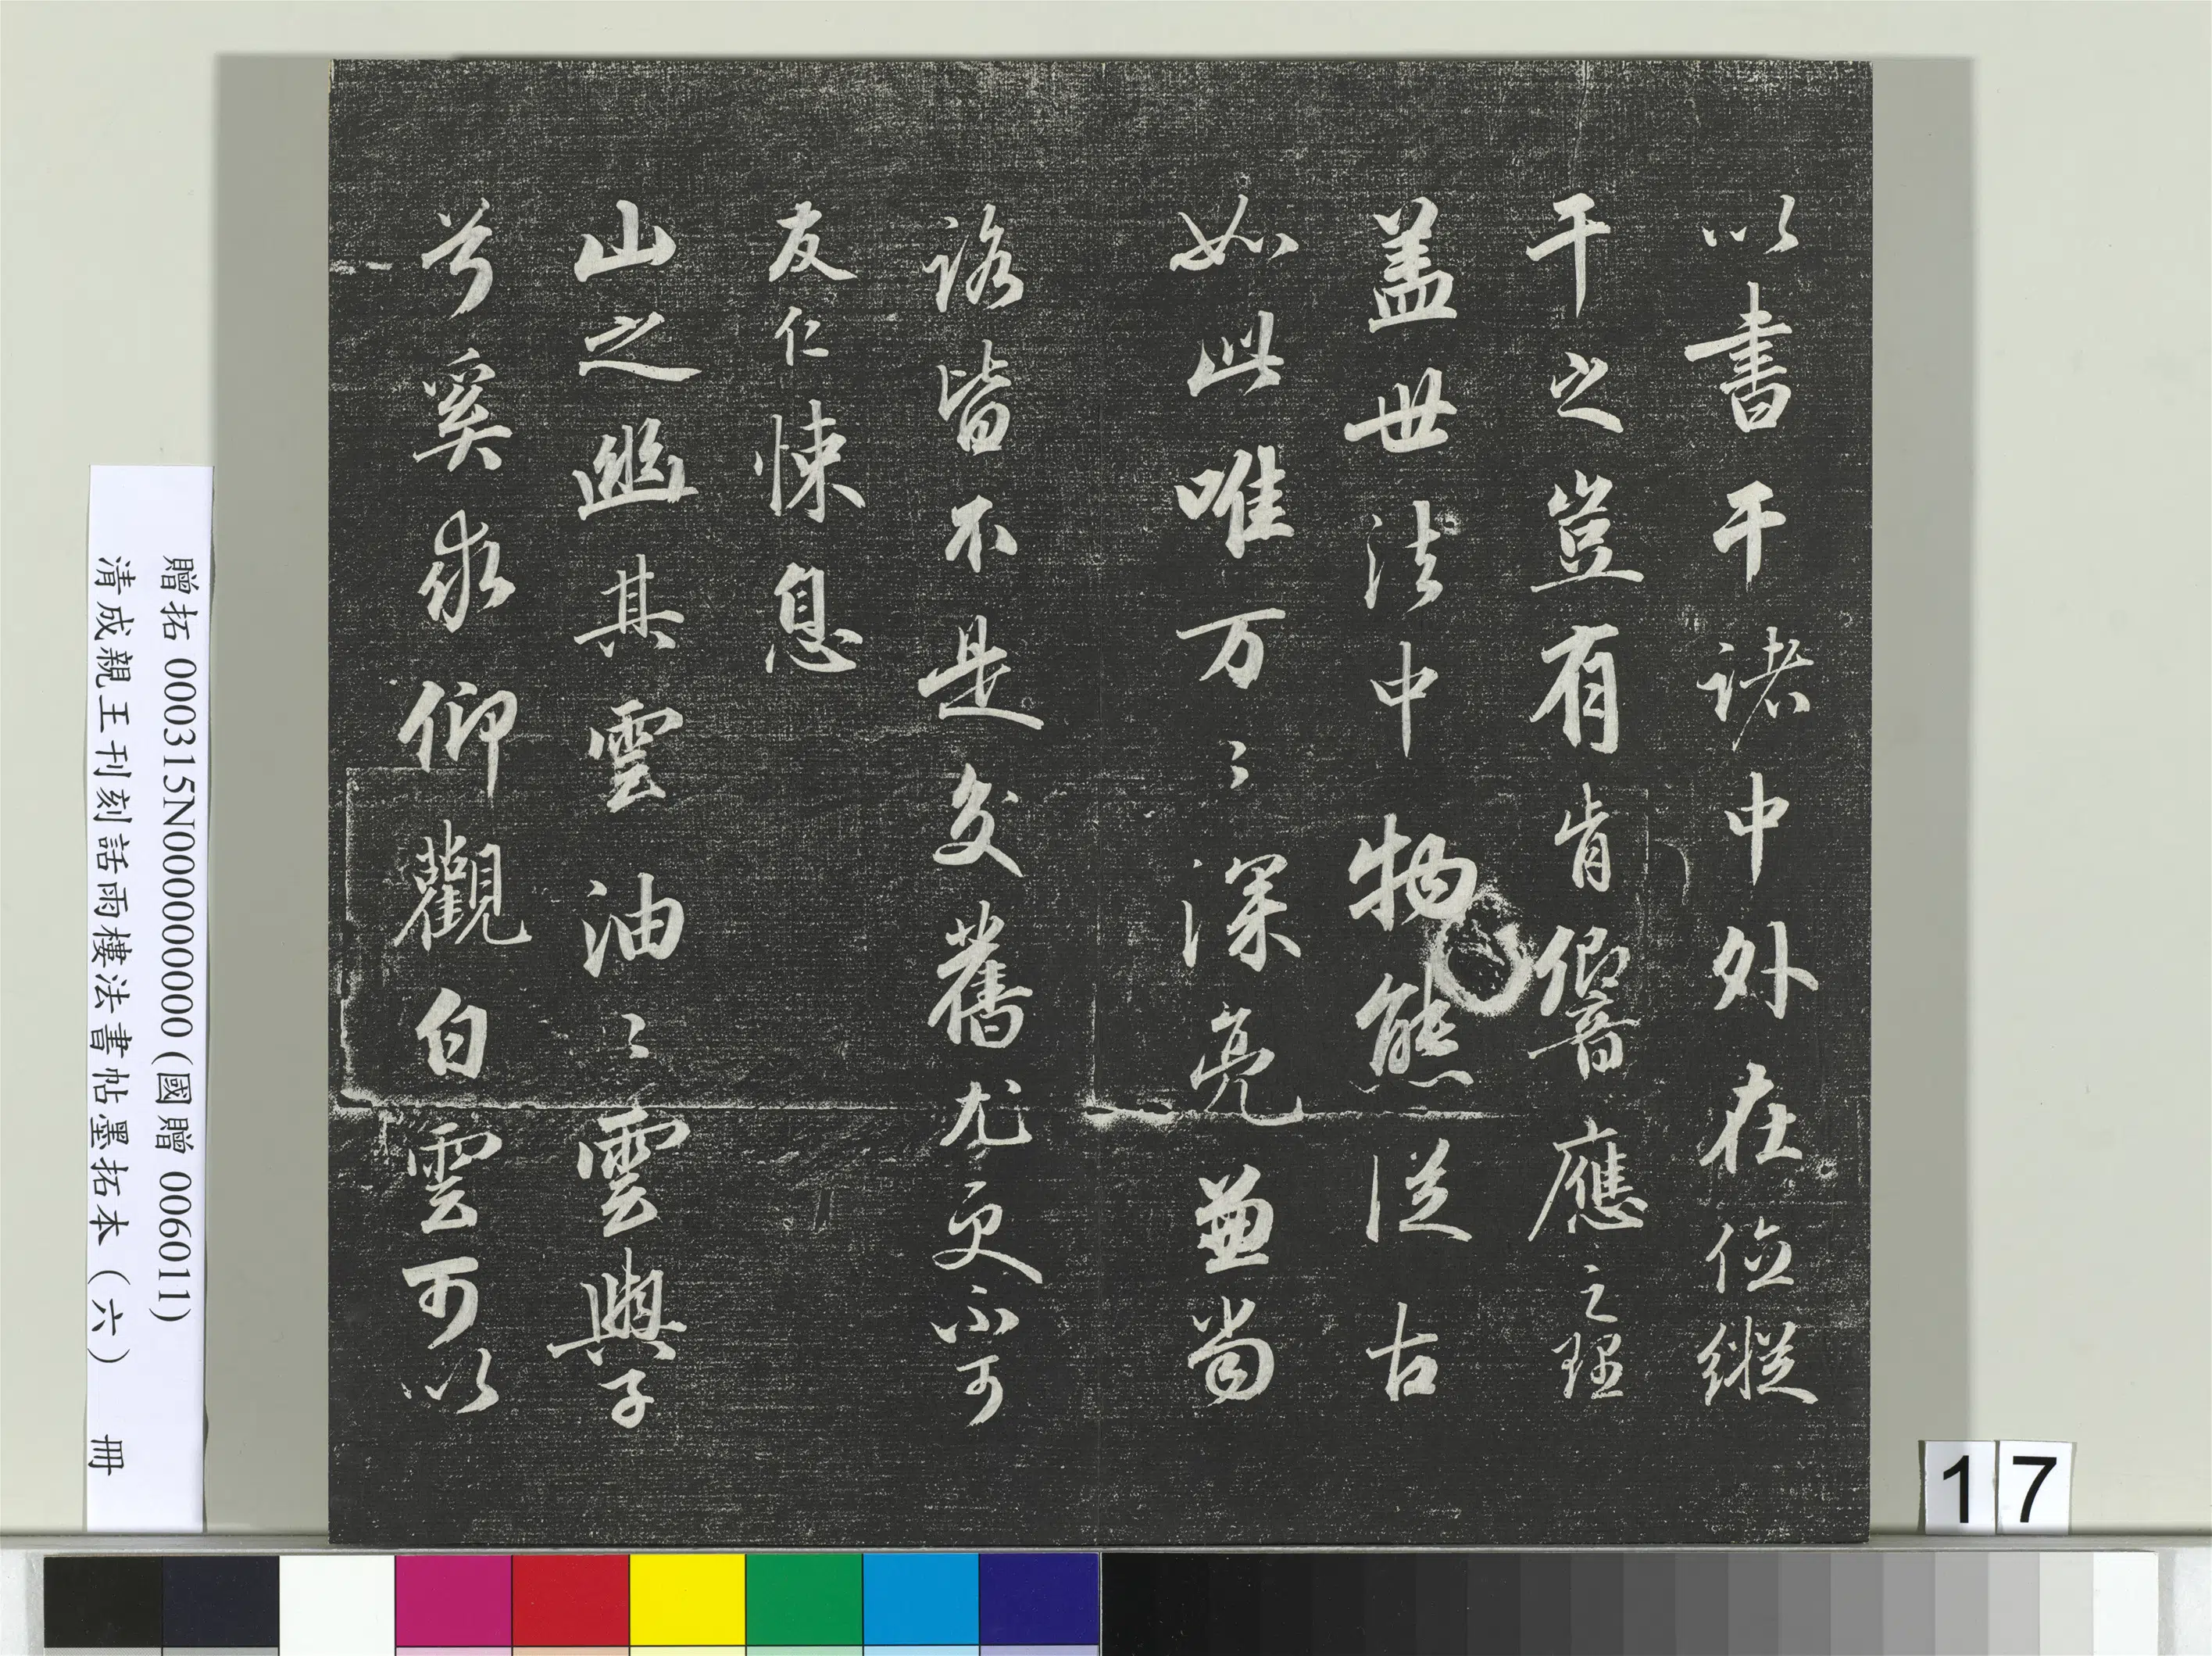 以書干諸中外在位縱
干之豈有肯響應之理
盖世法中物態従古
如此唯万〻深亮並尚
詻皆不是交舊尤更不可
友仁悚息
山之幽其雲油〻雲與子
兮奚求仰觀白雲可以
贈拓 000315N000000000 (國贈 006011)
清成親王刊刻話雨樓法書帖墨拓本（六） 冊
17